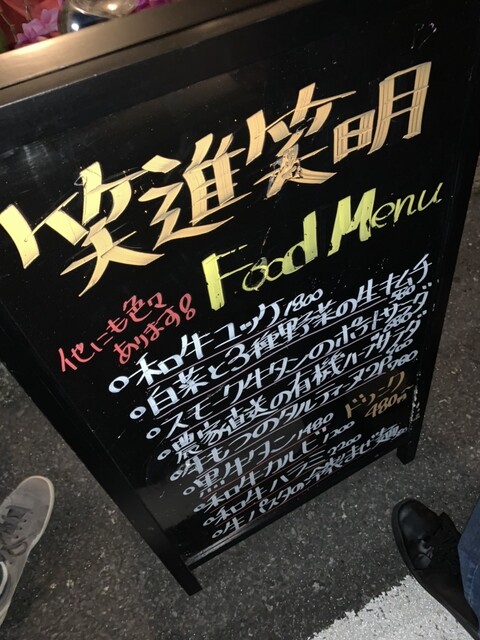 笑進笑明
Food Menu
他にも色々
あります!
○和牛ユッケ1800
○白菜と3種野菜の生キムチ
○スモーク牛タンのポテトサラダ
○農家直送の有機ハーブサラダ
○牛もつのタルティーヌ
○黒牛タン1480
○和牛カルビ
○和牛ハラミ2200
○生パスタの冷製まぜ麺
ドリンク
480円